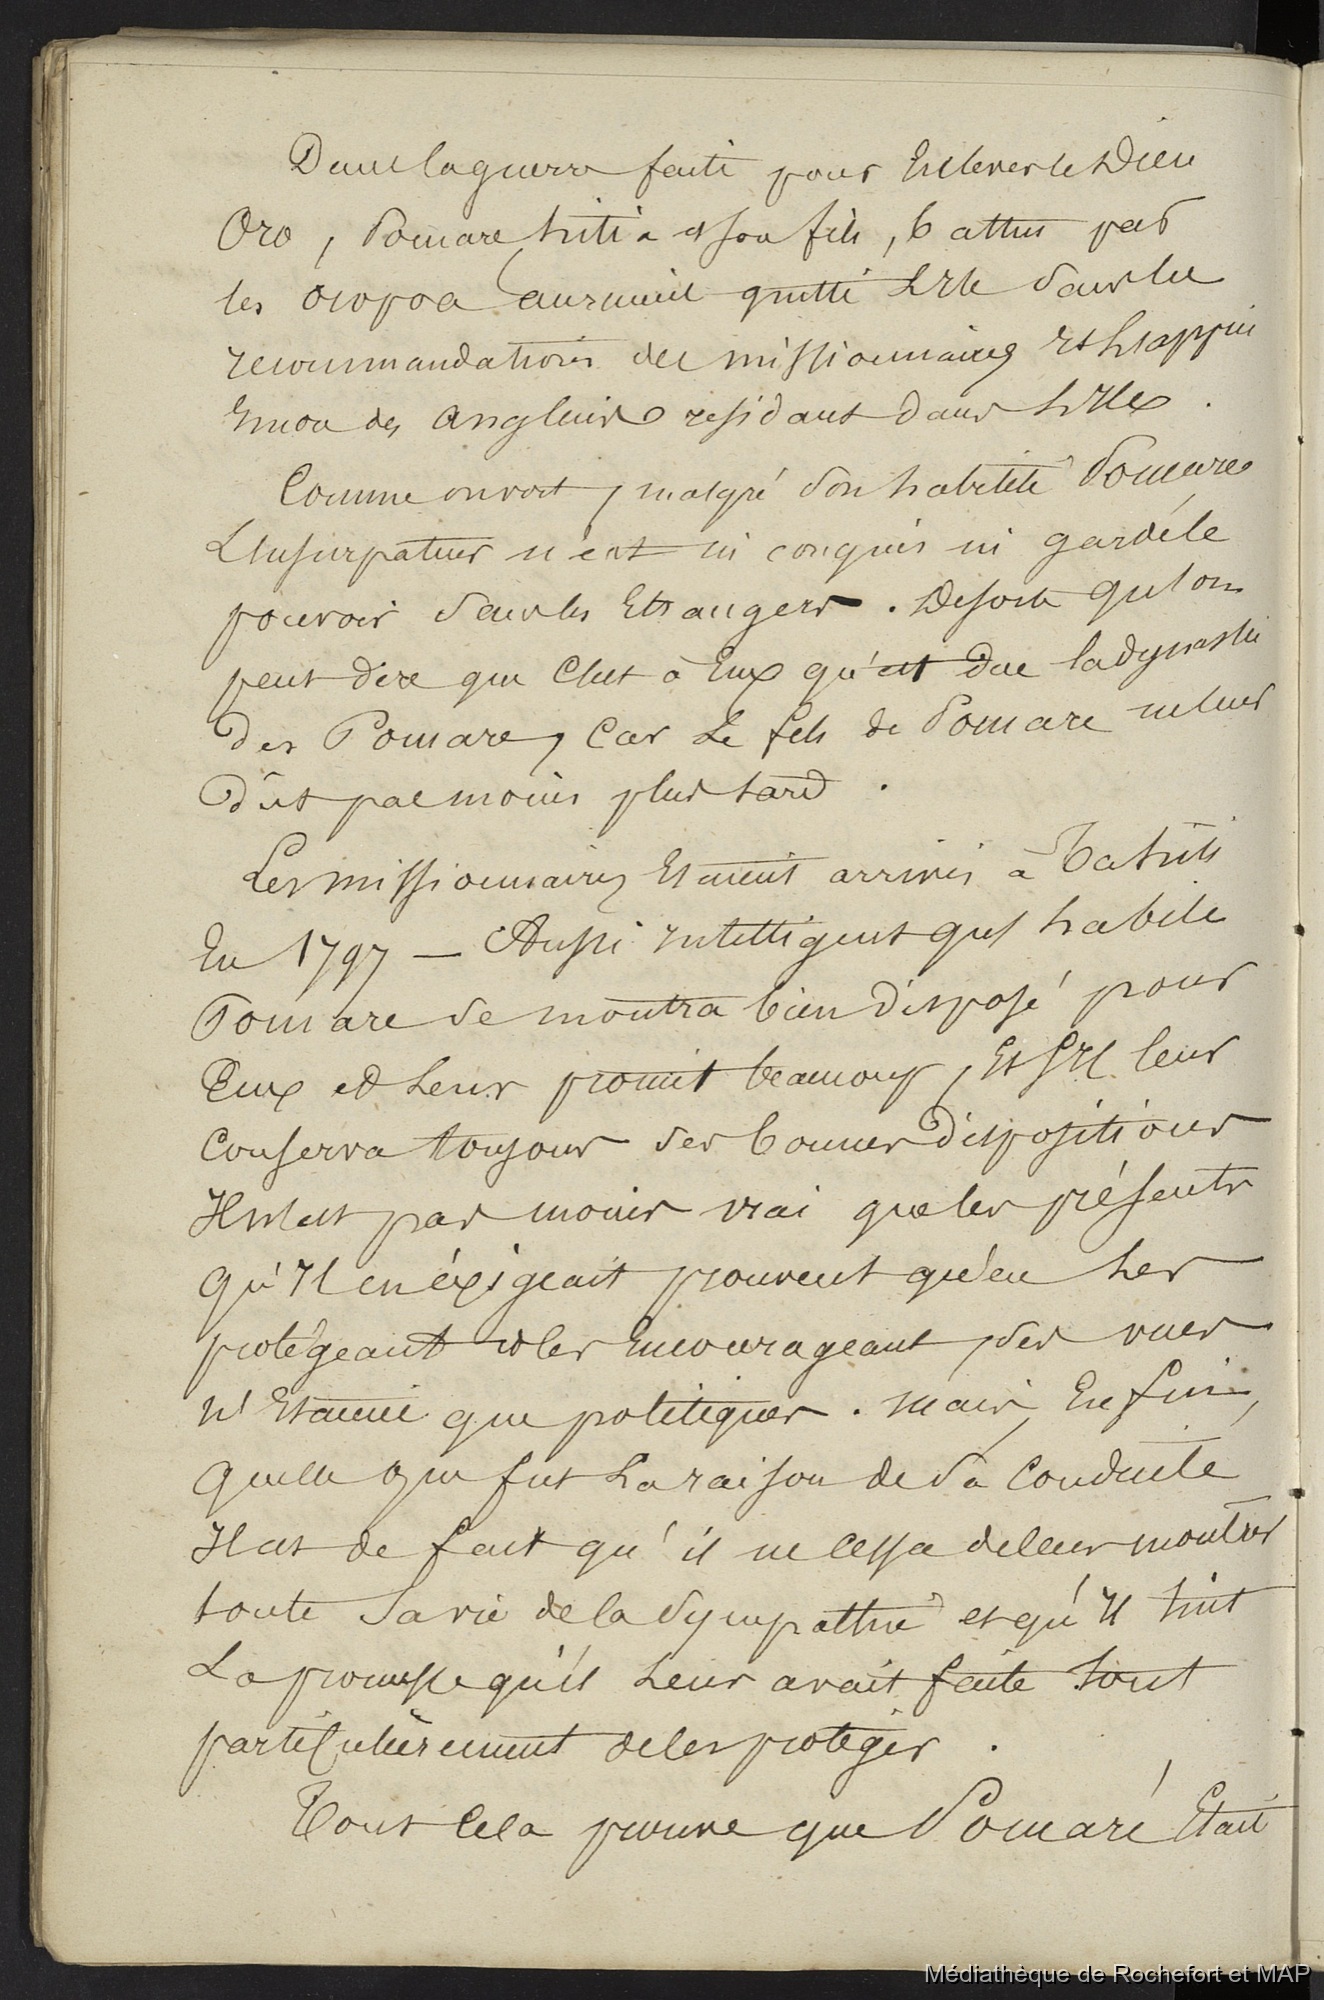 Dans la guerre faite pour Enlever le Dieu
Oro, Pomare hitia et son fils, battus par
les oropoa auraient quitté L'Ile Sans les
recommandations des missionnaires Et L'appui
Emou des Anglais residant dans L'Ile.
Comme on voit, malgré Son habileté Pomare
L'Usurpateur n'eut ni conquis ni gardé le
pouvoir Sans les Etrangers. De sorte qu'on
peut dire que C'est à Eux qu'est Due la dynastie
des Pomare, Car Le fils de Pomare ne leur
dut pas moins plus tard.
Les missionnaires Etaient arrivés à Tahiti
En 1797 — Aussi intelligent que habile
Pomare Se montra bien Disposé pour
Eux et Leur promit beaucoup, Et S'Il leur
Conserva toujours Ses bonnes Dispositions
Il n'est pas moins vrai que les présents
qu'Il en éxigeait prouvent qu'en Les
protégeant et les Encourageant, Ses vues
n'Etaient que politiques. Mais, Enfin,
quelle que fut La raison de Sa Conduite
Il est de fait qu'il ne Cessa de leur montrer
toute Sa vie de la Sympathie et qu'Il tint
La promesse qu'il Leur avait faite tout
particulièrement de les protéger.
Tout Cela prouve que Pomaré Etait
Médiathèque de Rochefort et MAP